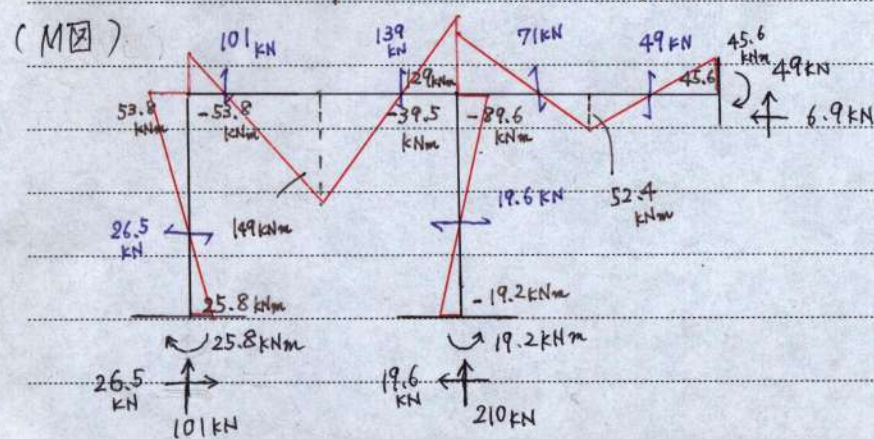 (M図)
101 KN
139 KN
71KN
49KN
45.6 KNm
49KN
6.9KN
129KNm
45.6
53.8 KNm
-53.8 KNm
-39.5 KNm
-89.6 KNm
26.5 KN
149KNm
19.6KN
52.4 KNm
25.8KNm
-19.2KNm
25.8KNm
19.2KNm
26.5 KN
19.6 KN
101KN
210KN